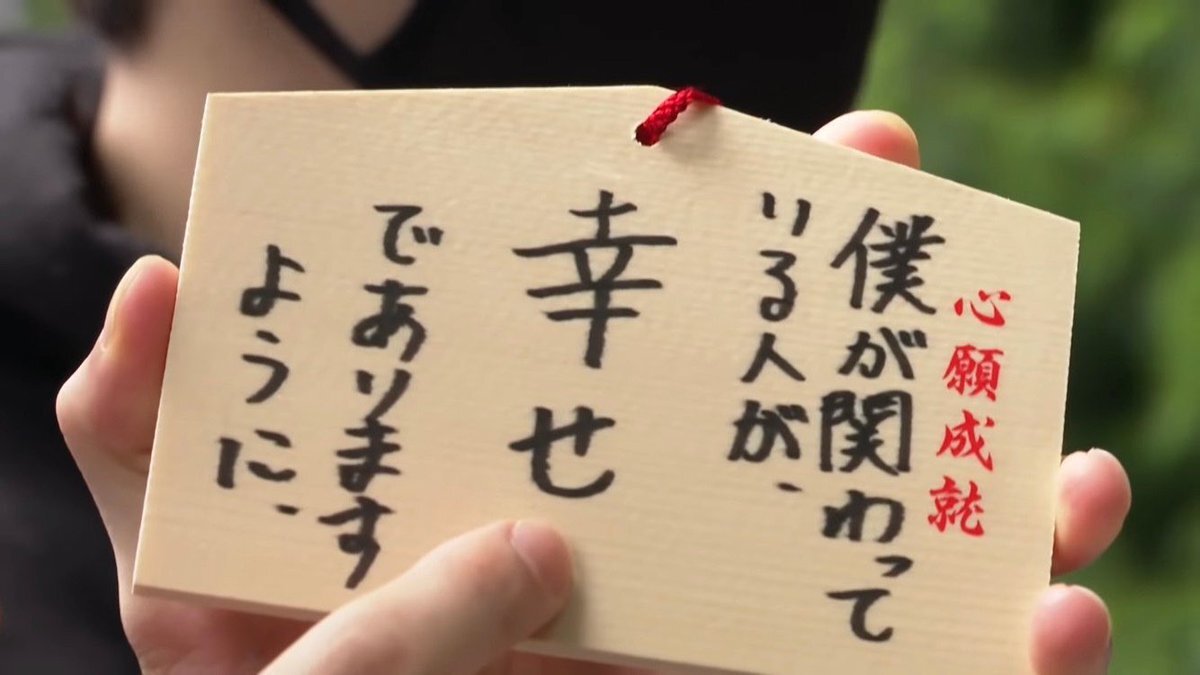 心願成就
僕が関わって
いる人が、
幸せ
であります
ように、